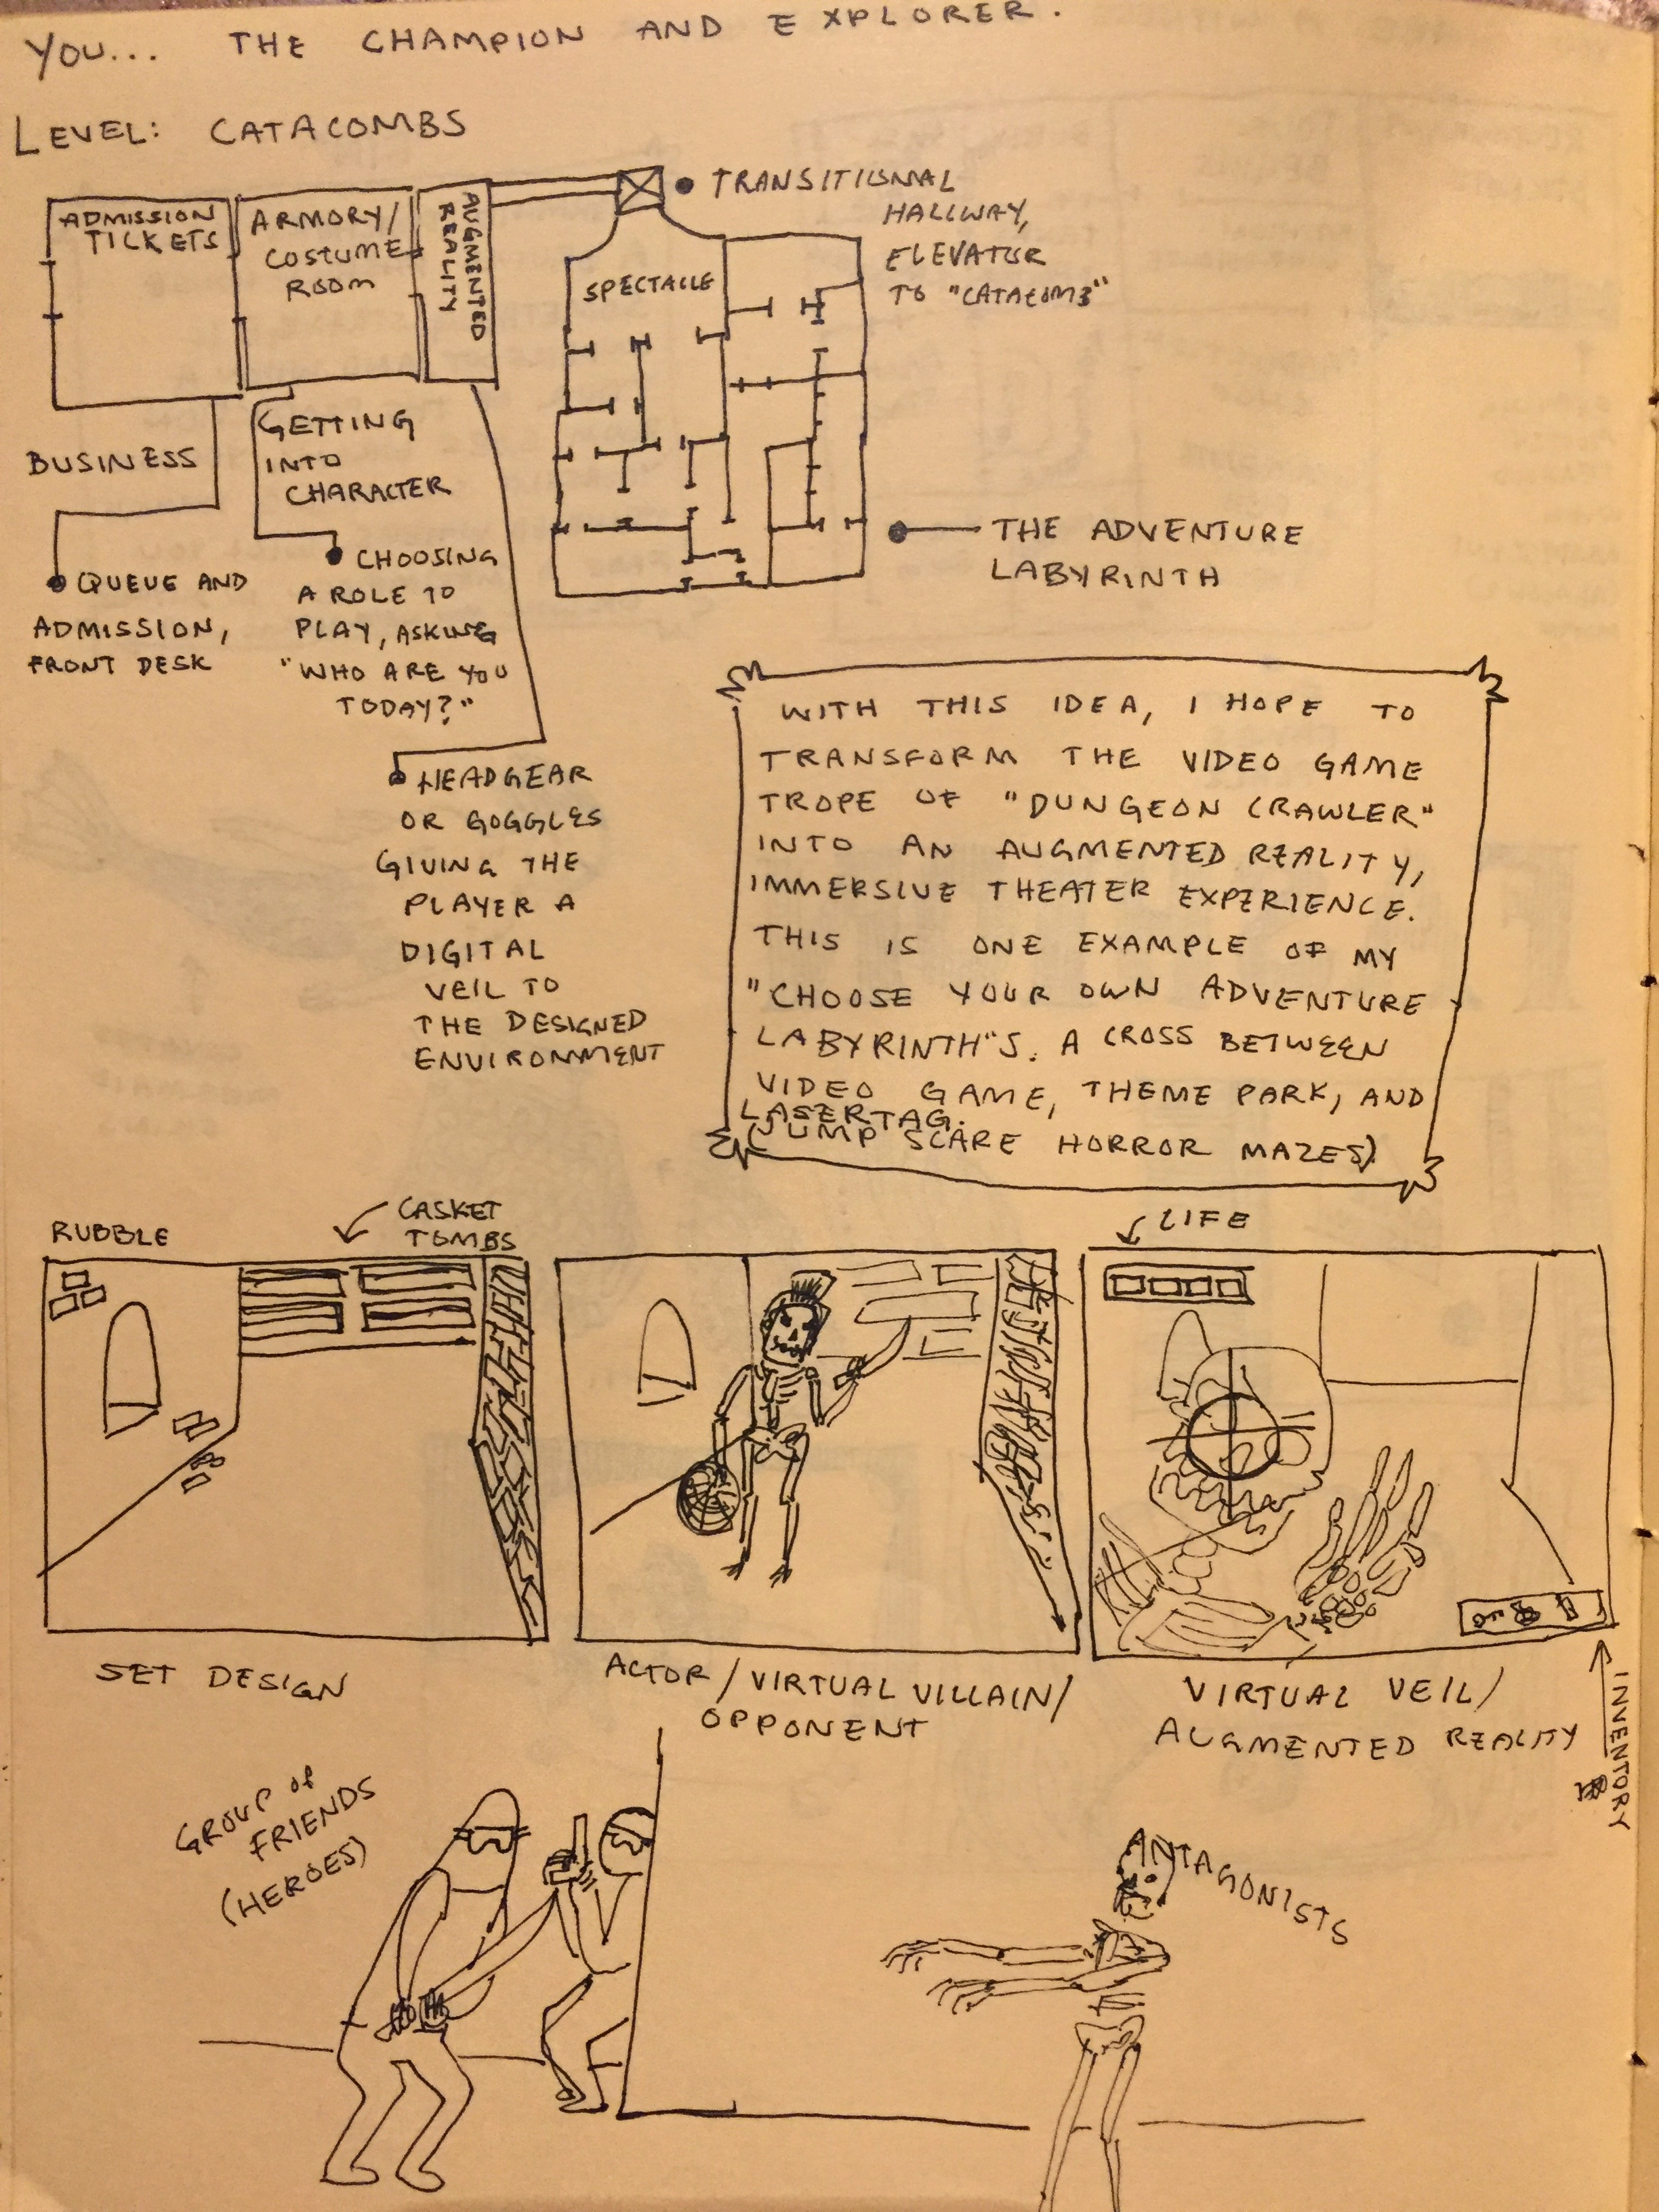 YOU... THE CHAMPION AND EXPLORER.
LEVEL: CATACOMBS
ADMISSION
TICKETS
ARMORY/
COSTUME
ROOM
AUGMENTED
REALITY
TRANSITIONAL
HALLWAY,
ELEVATOR
TO "CATACOMB"
SPECTACLE
BUSINESS
QUEUE AND
ADMISSION,
FRONT DESK
GETTING
INTO
CHARACTER
CHOOSING
A ROLE TO
PLAY, ASKING
"WHO ARE YOU
TODAY?"
THE ADVENTURE
LABYRINTH
HEADGEAR
OR GOGGLES
GIVING THE
PLAYER A
DIGITAL
VEIL TO
THE DESIGNED
ENVIRONMENT
WITH THIS IDEA, I HOPE TO
TRANSFORM THE VIDEO GAME
TROPE OF "DUNGEON CRAWLER"
INTO AN AUGMENTED REALITY,
IMMERSIVE THEATER EXPERIENCE.
THIS IS ONE EXAMPLE OF MY
"CHOOSE YOUR OWN ADVENTURE
LABYRINTH"S. A CROSS BETWEEN
VIDEO GAME, THEME PARK, AND
LASERTAG.
(JUMP SCARE HORROR MAZES).
RUBBLE
CASKET
TOMBS
LIFE
SET DESIGN
ACTOR/VIRTUAL VILLAIN/
OPPONENT
VIRTUAL VEIL/
AUGMENTED REALITY
INVENTORY
GROUP of
FRIENDS
(HEROES)
ANTAGONISTS